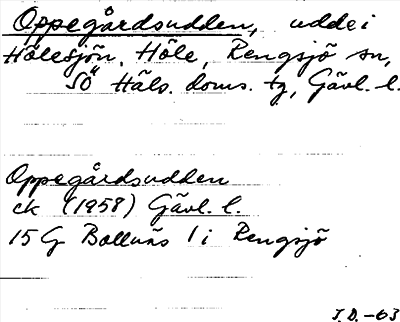 Oppegårdsudden, udde i
Hölesjön, Höle, Rengsjö sn,
SÖ Häls. doms. tg, Gävl. l.
Oppegårdsudden
ek (1958) Gävl. l.
15 G Bollnäs 1 i Rengsjö
J.D.-63